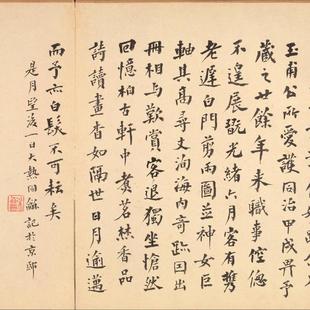 玉甫公所愛護同治甲戌畀予
藏之廿餘年来職事倥傯
不遑展翫光緒六月客有携
老遲白門剪雨圖並神女巨
軸其高尋丈洵海内奇蹟因出
冊相与歎賞客退獨坐愴然
回憶柏古軒中煮茗焚香品
詩讀畫杳如隔世日月逾邁
而予亦白髮不可耘矣
是月望後一日大熱伯龢記於京邸